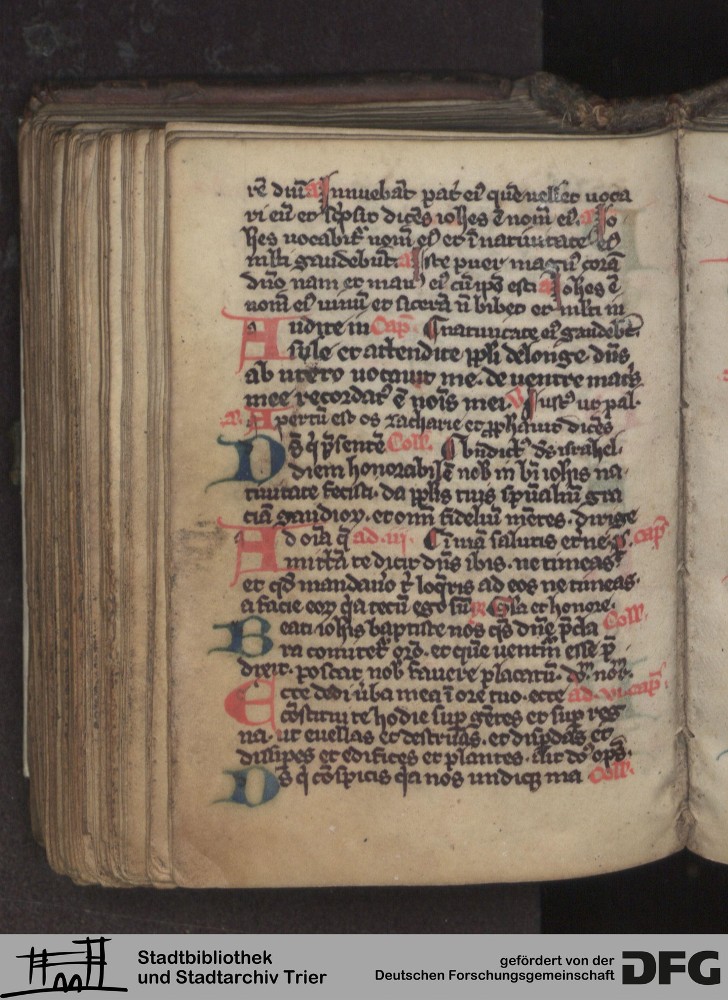 rē dn̄m a Innuebāt patⁱ eiꝰ quē vellet voca
ri eū et sc̄psit dicēs ioh̄es ē nom̄ eiꝰ a Io
h̄es vocabit᷑ nom̄ eiꝰ et ī natiuitate eiꝰ
mlti gaudebūt a Iste puer magnꝰ corā
dn̄o nam et manꝰ eiꝰ cū ip̄o est a Ioh̄es ē
nom̄ eiꝰ vinū et sicerā n̄ bibet et mlti in
a Audite in Cap̄ natiuitate eiꝰ gaudebt᷑
sule et attendite pp̄li de longe dn̄s
ab utero vocauit me de uentre matⁱs
mee recordatꝰ ē noīs mei v̄ Iustꝰ ut pal
a Apertū est os zacharie et ꝓph̄auit dicēs
Ds̄ q̇ p̄sentē Coll. bn̄dictꝰ ds̄ israhel
diem honorabilē nob̄ in bt̄i ioh̄is na
tiuitate fecisti da pp̄lis tuis sp̄ualiū gra
ciā gaudioꝝ et om̄ fideliū mētes dirige
a Ad oīa q̄ ad. iii. viā salutis et ne p̄ cap̄
mittā te dicit dn̄s ibis ne timeas
et qd̄ mandauo tⁱ loq̄ris ad eos ne timeas
a facie eoꝝ q̇a tecū ego sū R̄ Gl̄a et honore
Beati ioh̄is baptiste nos qs̄ dn̄e p̄cla Coll.
ra comitet᷑ or̄o et que uentur̄ esse p̄
dixit poscat nob̄ fauere placatū dn̄m nr̄m
Ecce dedi ūba mea ī ore tuo ecce ad. vi. cap̄
cōstitui te hodie sup̄ gētes et sup̄ reg
na ut euellas et destruas et disp̄das et
dissipes et edifices et plantes
Ds̄ q̇ cōspicis q̇a nos undiqꝫ ma Coll.
Stadtbibliothek
und Stadtarchiv Trier
gefördert von der
Deutschen Forschungsgemeinschaft
DFG